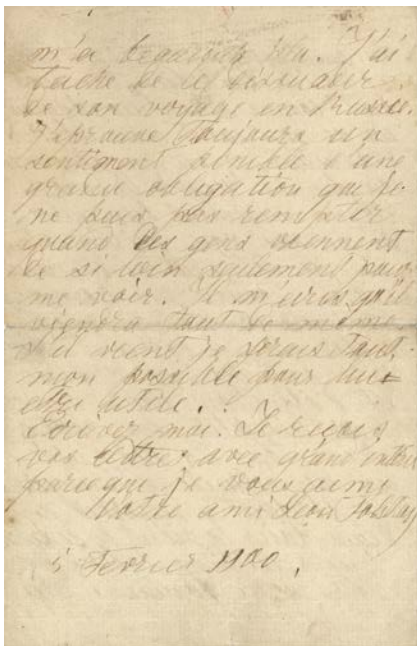 m'a beaucoup plu. J'ai
tâché de le dissuader
de son voyage en Russie.
J'éprouve toujours un
sentiment pénible d'une
grande obligation que je
ne puis pas remplir
quand des gens viennent
de si loin seulement pour
me voir. Il m'écrit qu'il
viendra tout de même
S'il vient je ferais tout
mon possible pour lui
être utile.
Ecrivez moi. Je reçois
vos lettres avec grand
parceque je vous aime
Votre ami Léon Tolstoy
5 Fevrier 1900.